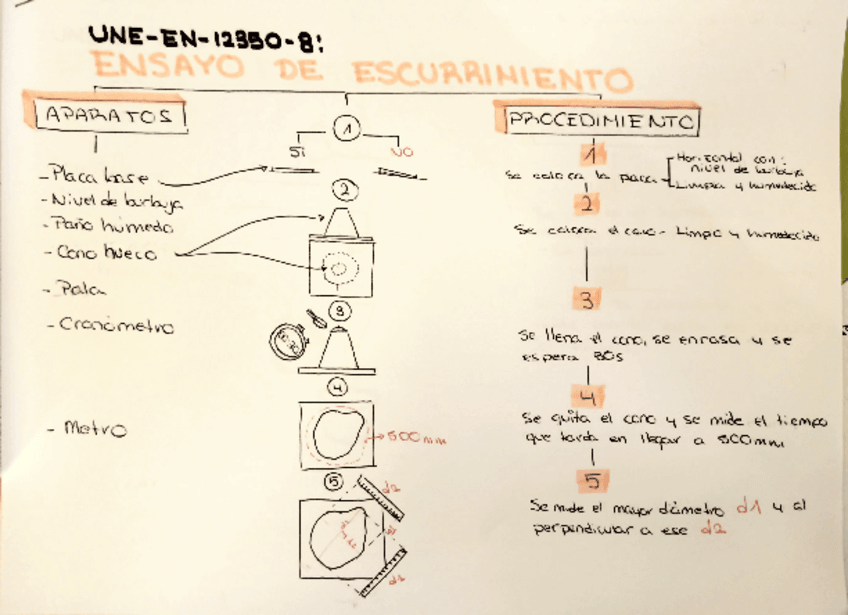 UNE-EN-12350-8:
ENSAYO DE ESCURRIMIENTO
APARATOS
- Placa base
- Nivel de burbuja
- Paño húmedo
- Cono hueco
- Pala
- Cronómetro
- Metro
1
SÍ NO
2
3
4
500mm
5
d2
d1
PROCEDIMIENTO
1
Se coloca la placa
Horizontal con:
nivel de burbuja
Limpia y humedecida
2
Se coloca el cono - Limpio y humedecido
3
Se llena el cono, se enrasa y se
espera 30s
4
Se quita el cono y se mide el tiempo
que tarda en llegar a 500mm
5
Se mide el mayor diámetro d1 y al
perpendicular a ese d2